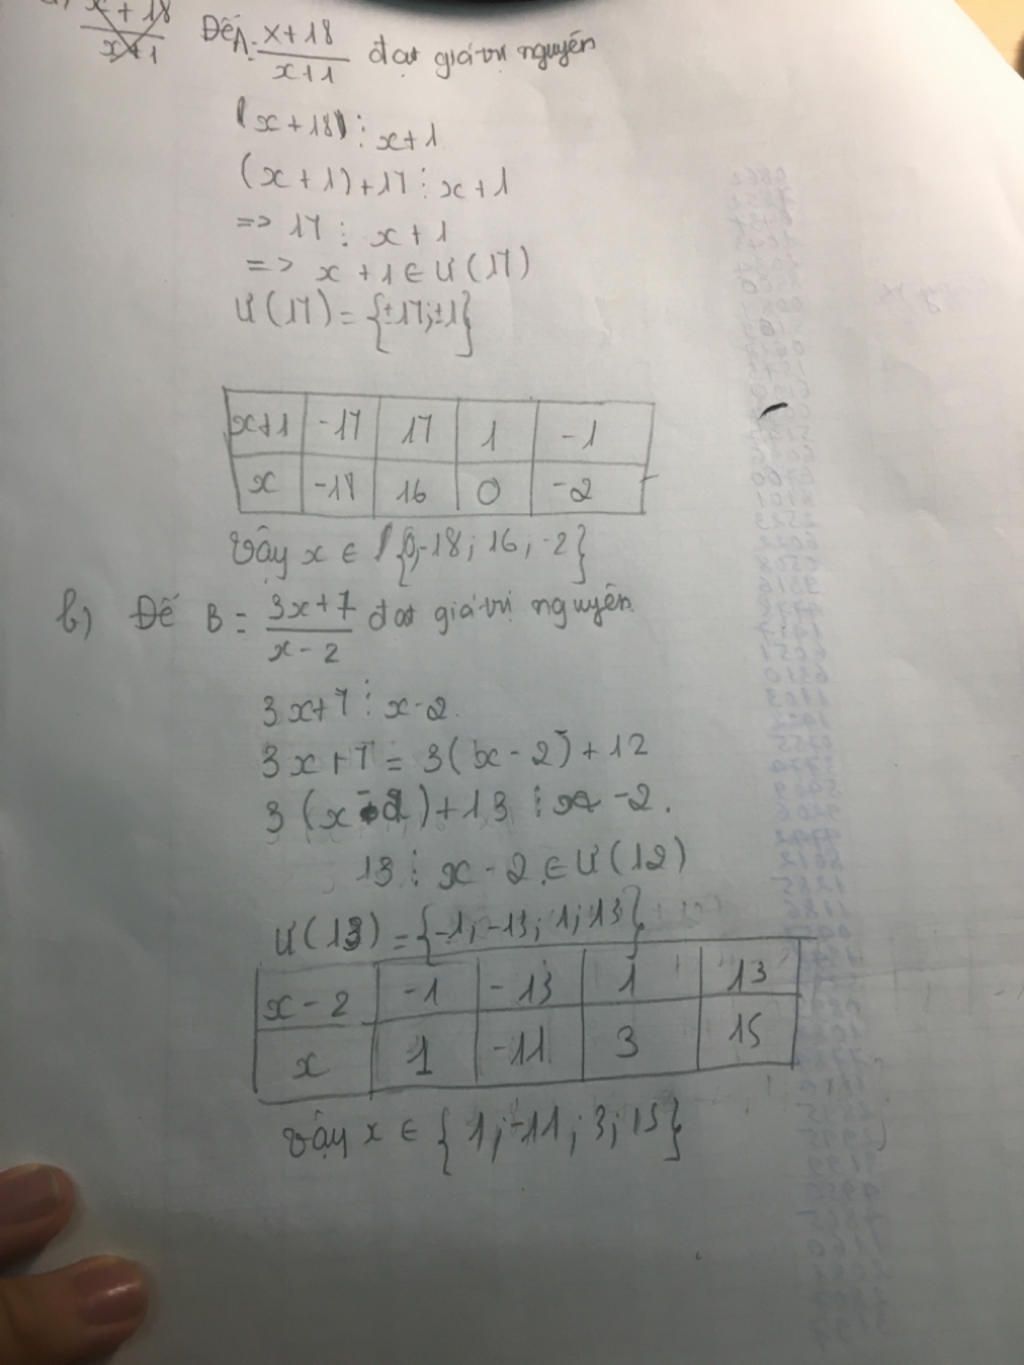 x+18 / x+1 Để A = x+18 / x+1 đạt giá trị nguyên
(x+18) ⋮ x+1
(x+1)+17 ⋮ x+1
=> 17 ⋮ x+1
=> x+1 ∈ Ư(17)
Ư(17) = {±17; ±1}
x+1 -17 17 1 -1
x -18 16 0 -2
Vậy x ∈ {0; -18; 16; -2}
b) Để B = 3x+7 / x-2 đạt giá trị nguyên
3x+7 ⋮ x-2
3x+7 = 3(x-2)+12
3(x-2)+13 ⋮ x-2.
13 ⋮ x-2 ∈ Ư(12)
Ư(13) = {-1; -13; 1; 13}
x-2 -1 -13 1 13
x 1 -11 3 15
Vậy x ∈ {1; -11; 3; 15}